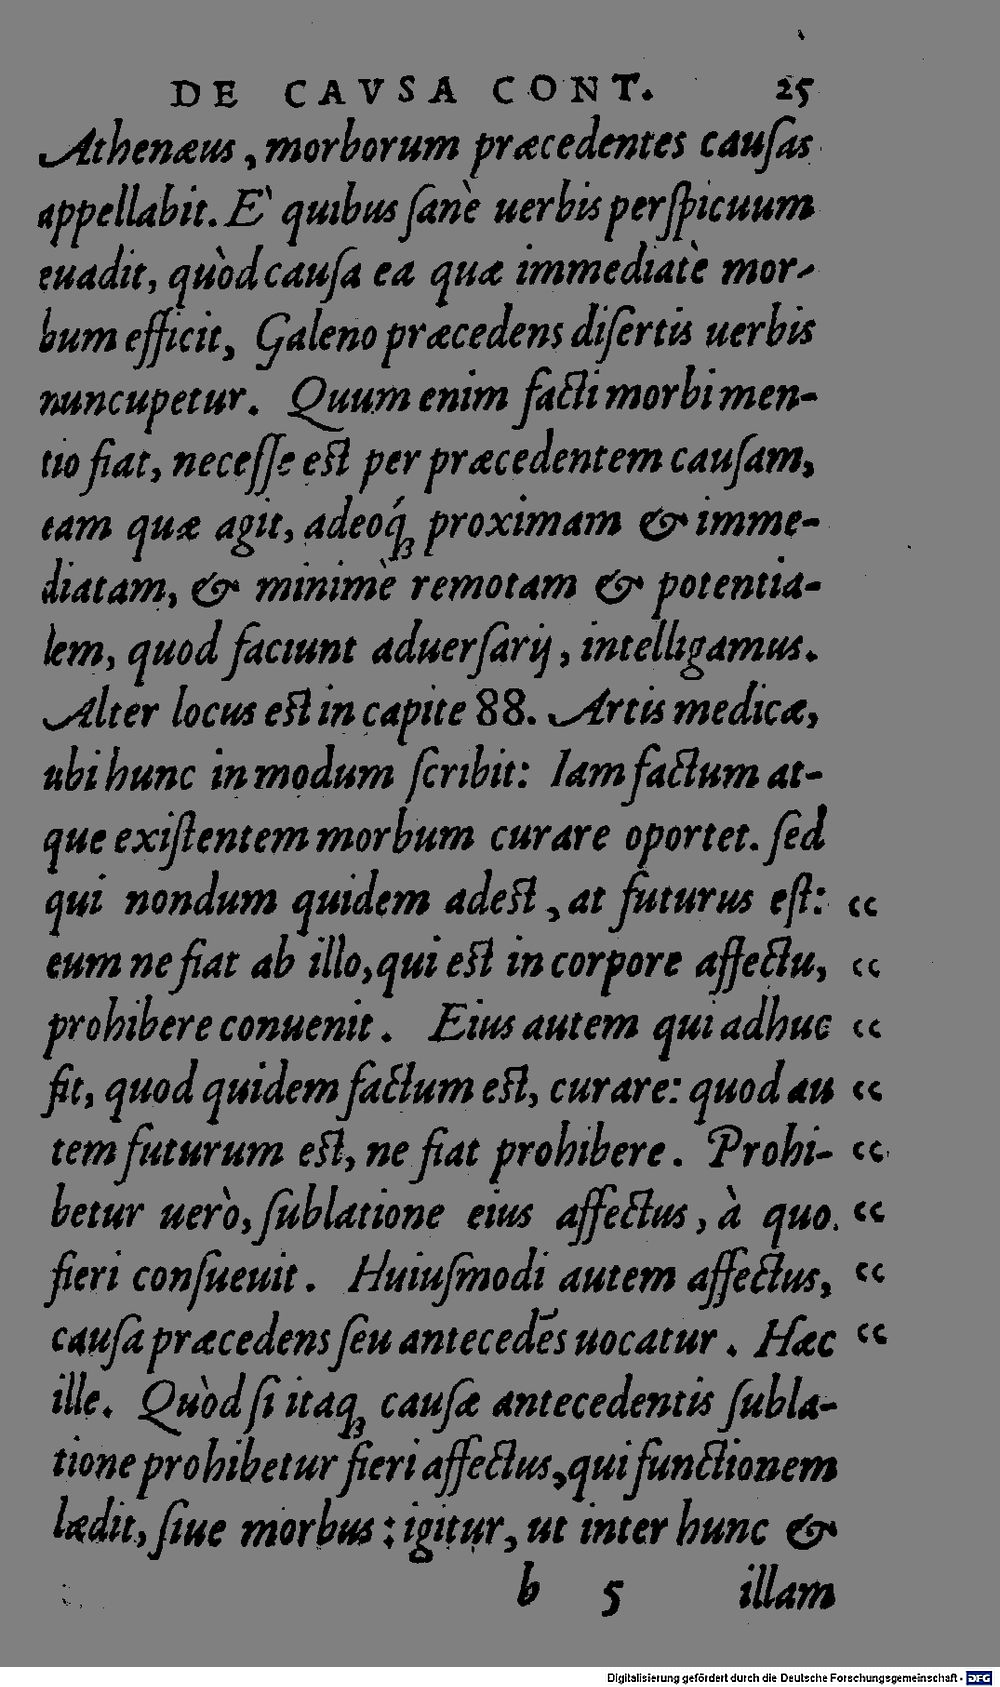 DE CAVSA CONT. 25
Athenæus, morborum præcedentes cauſas
appellabit. E` quibus ſanè uerbis perſpicuum
euadit, quòd cauſa ea quæ immediatè mor-
bum efficit, Galeno præcedens diſertis uerbis
nuncupetur. Quum enim facti morbi men-
tio fiat, neceſſe est per præcedentem cauſam,
eam quæ agit, adeoq́ꝫ proximam & imme-
diatam, & minimè remotam & potentia-
lem, quod faciunt aduerſarij, intelligamus.
Alter locus est in capite 88. Artis medicæ,
ubi hunc in modum ſcribit: Iam factum at-
que exiſtentem morbum curare oportet. ſed
qui nondum quidem adest, at futurus eſt: “
eum ne fiat ab illo, qui est in corpore affectu, “
prohibere conuenit. Eius autem qui adhuc “
fit, quod quidem factum est, curare: quod au “
tem futurum est, ne fiat prohibere. Prohi- “
betur uerò, ſublatione eius affectus, à quo “
fieri conſueuit. Huiuſmodi autem affectus, “
cauſa præcedens ſeu antecedēs uocatur. Hæc “
ille. Quòd ſi itaqꝫ cauſæ antecedentis ſubla-
tione prohibetur fieri affectus, qui functionem
lædit, ſiue morbus: igitur, ut inter hunc &
b 5 illam
Digitalisierung gefördert durch die Deutsche Forschungsgemeinschaft - DFG